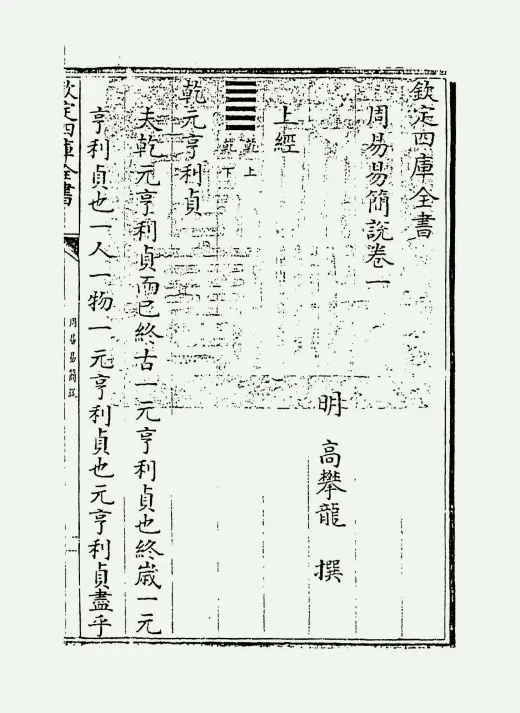 欽定四庫全書
周易易簡說卷一
明 高攀龍 撰
上經
乾上
乾下
乾元亨利貞
夫乾元亨利貞而已終古一元亨利貞也終歲一元
亨利貞也一人一物一元亨利貞也元亨利貞盡乎
欽定四庫全書
周易易簡說